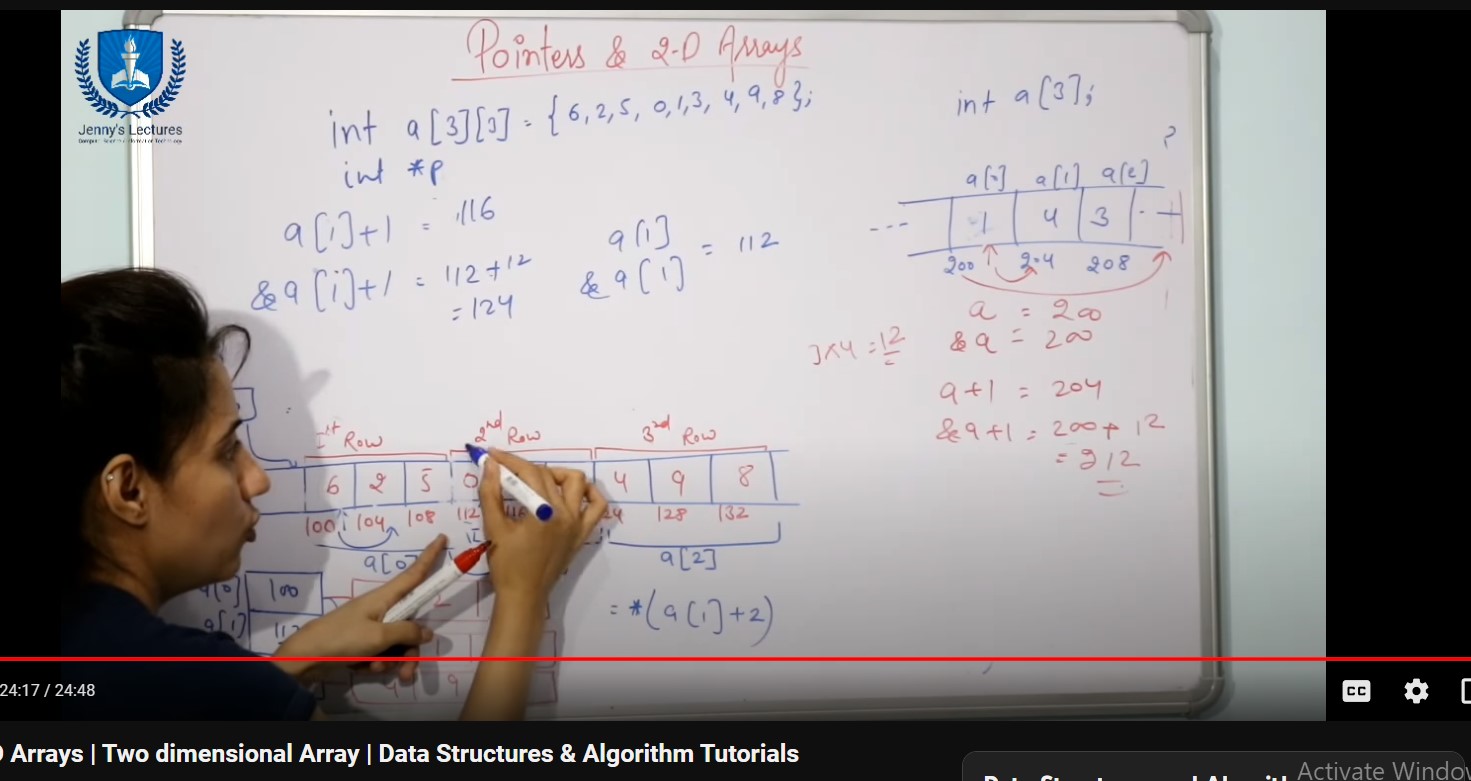 Jenny's Lectures
Pointers & 2-D Arrays
int a[3][3] = {6,2,5, 0,1,3, 4,9,8};
int *p
a[1]+1 = 116
&a[1]+1 = 112+12
= 124
a[1]
&a[1] = 112
int a[3];
?
a[0] a[1] a[2]
--- 1 4 3
200 204 208
a = 200
&a = 200
3×4 = 12
a+1 = 204
&a+1 = 200+12
= 212
1st Row 2nd Row 3rd Row
6 2 5 0 4 9 8
100 104 108 112 116 124 128 132
a[0] a[2]
a[0] 100
a[1] 112
2
= *(a[1]+2)
1
4 9
24:17 / 24:48
CC
Arrays | Two dimensional Array | Data Structures & Algorithm Tutorials
Activate Windo